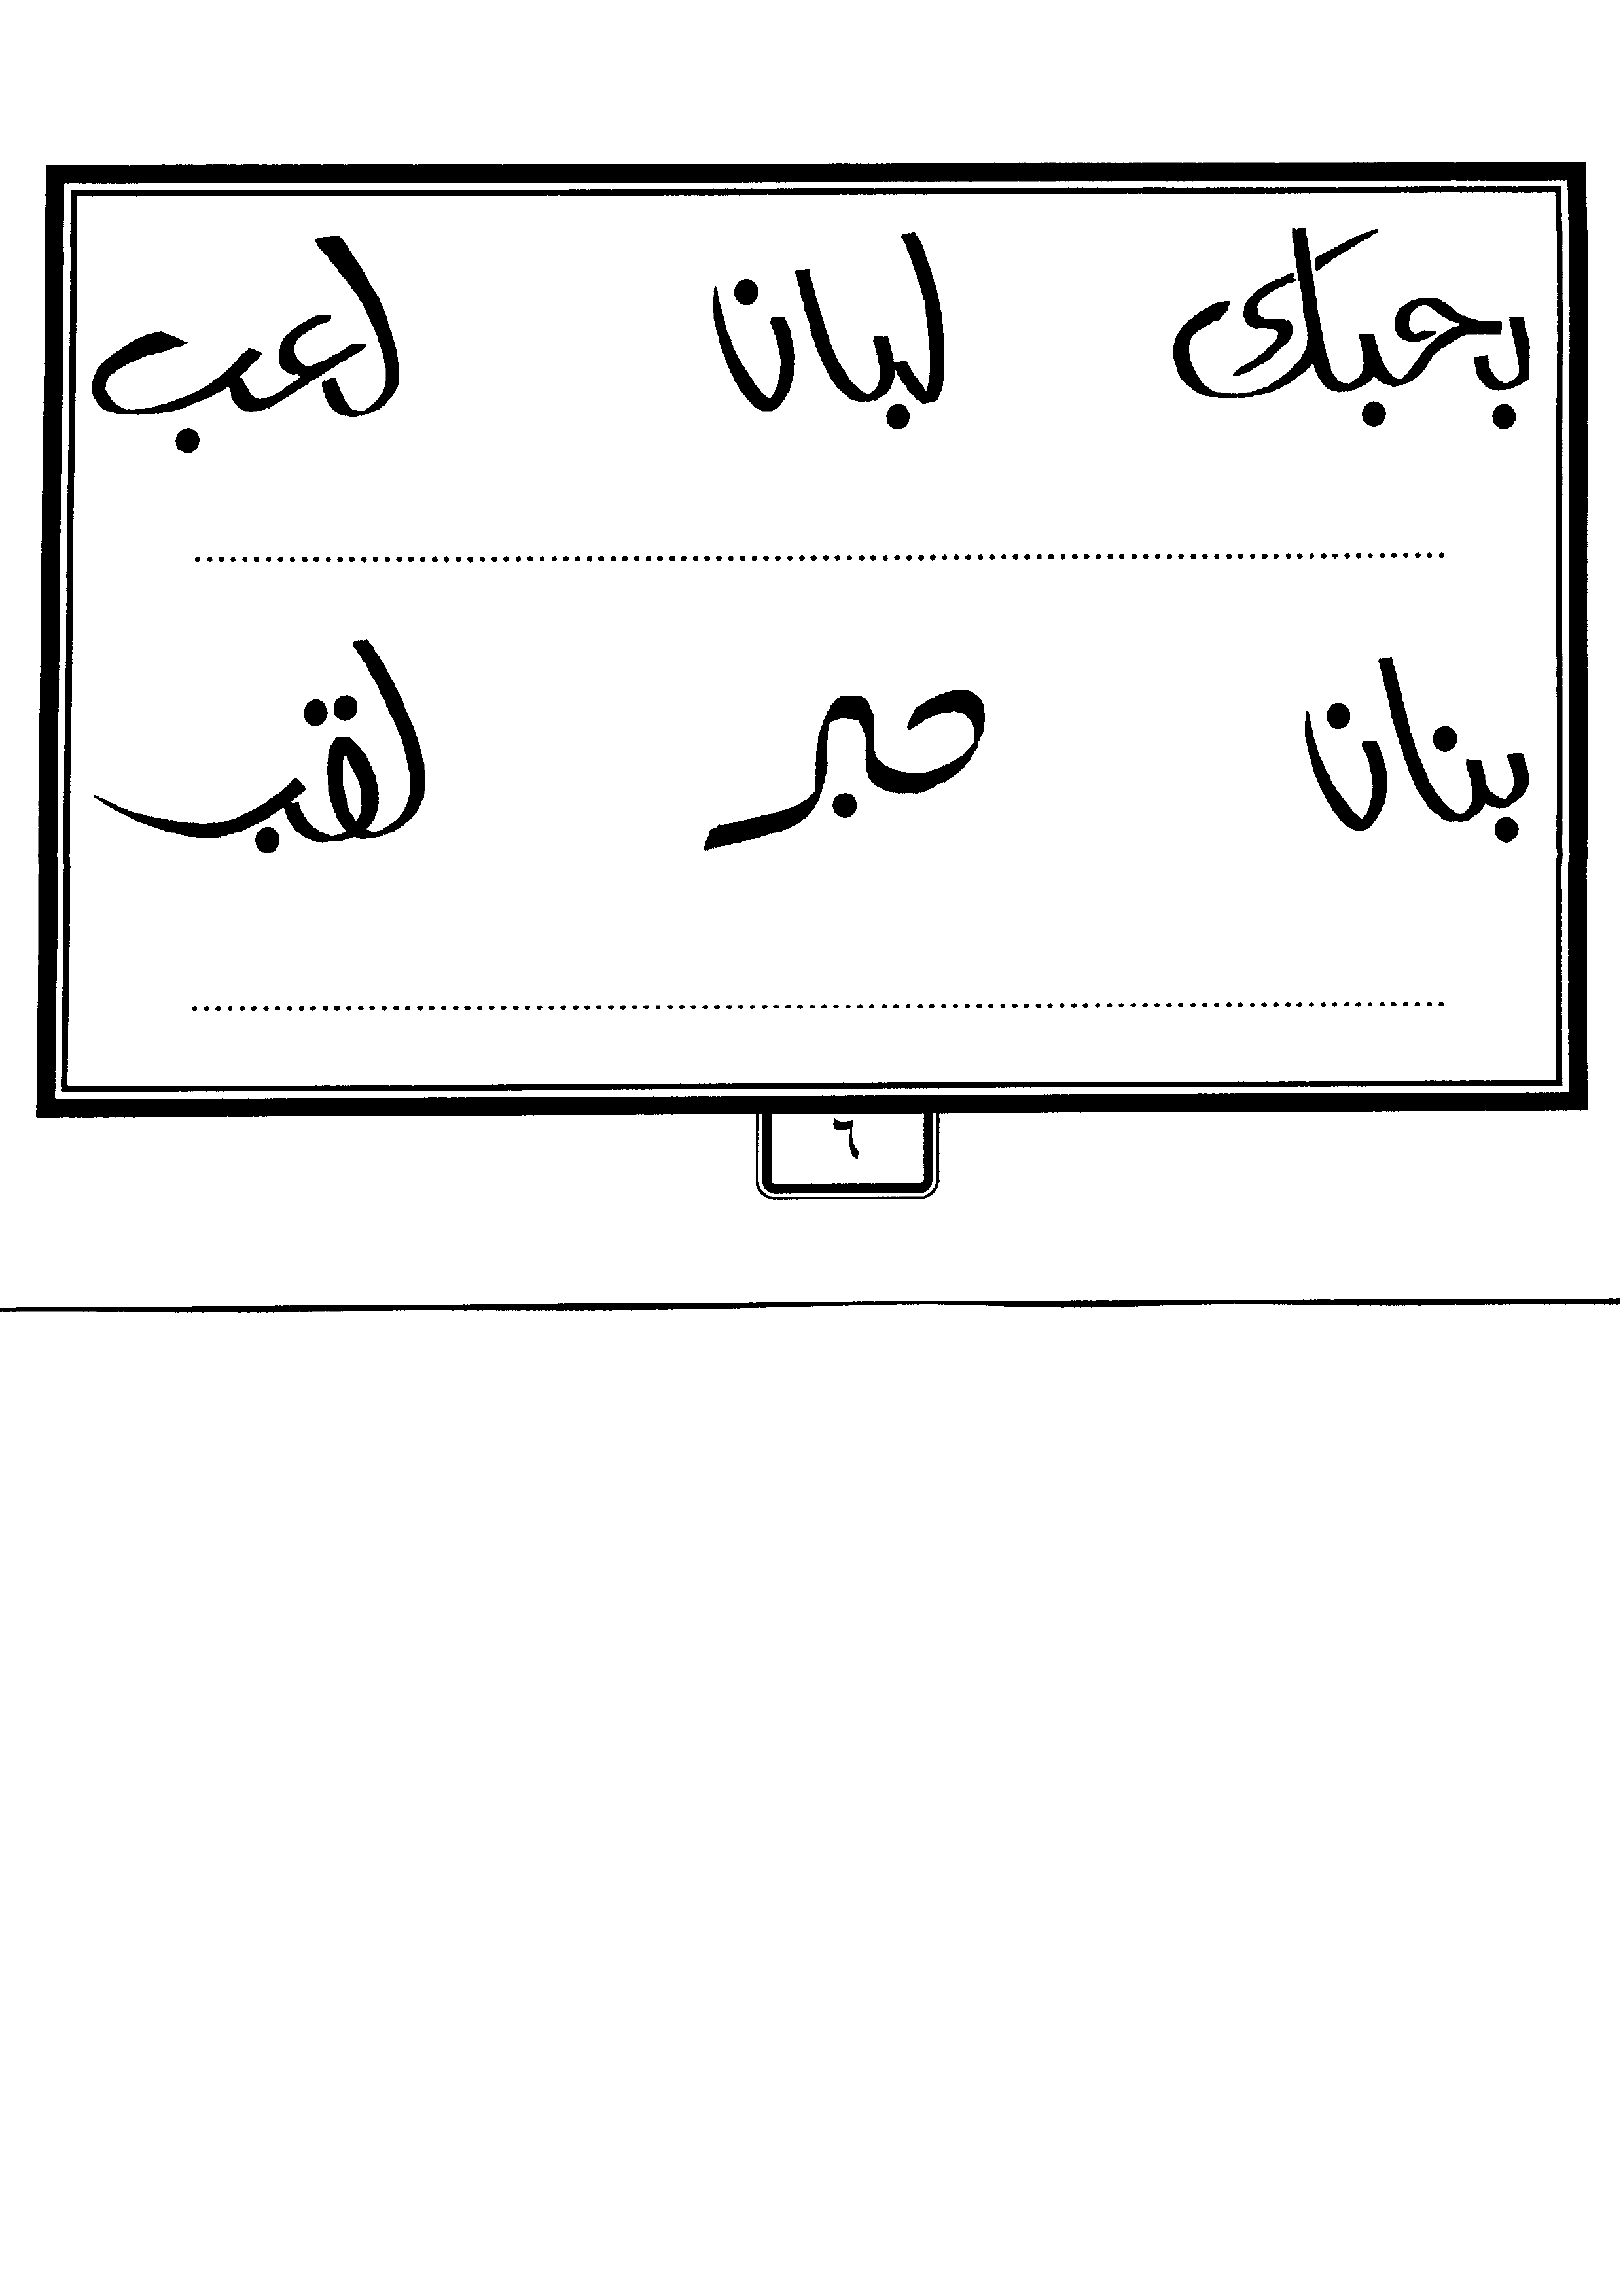 بحبكى لبان لعب
بنان حبر لقب
٦